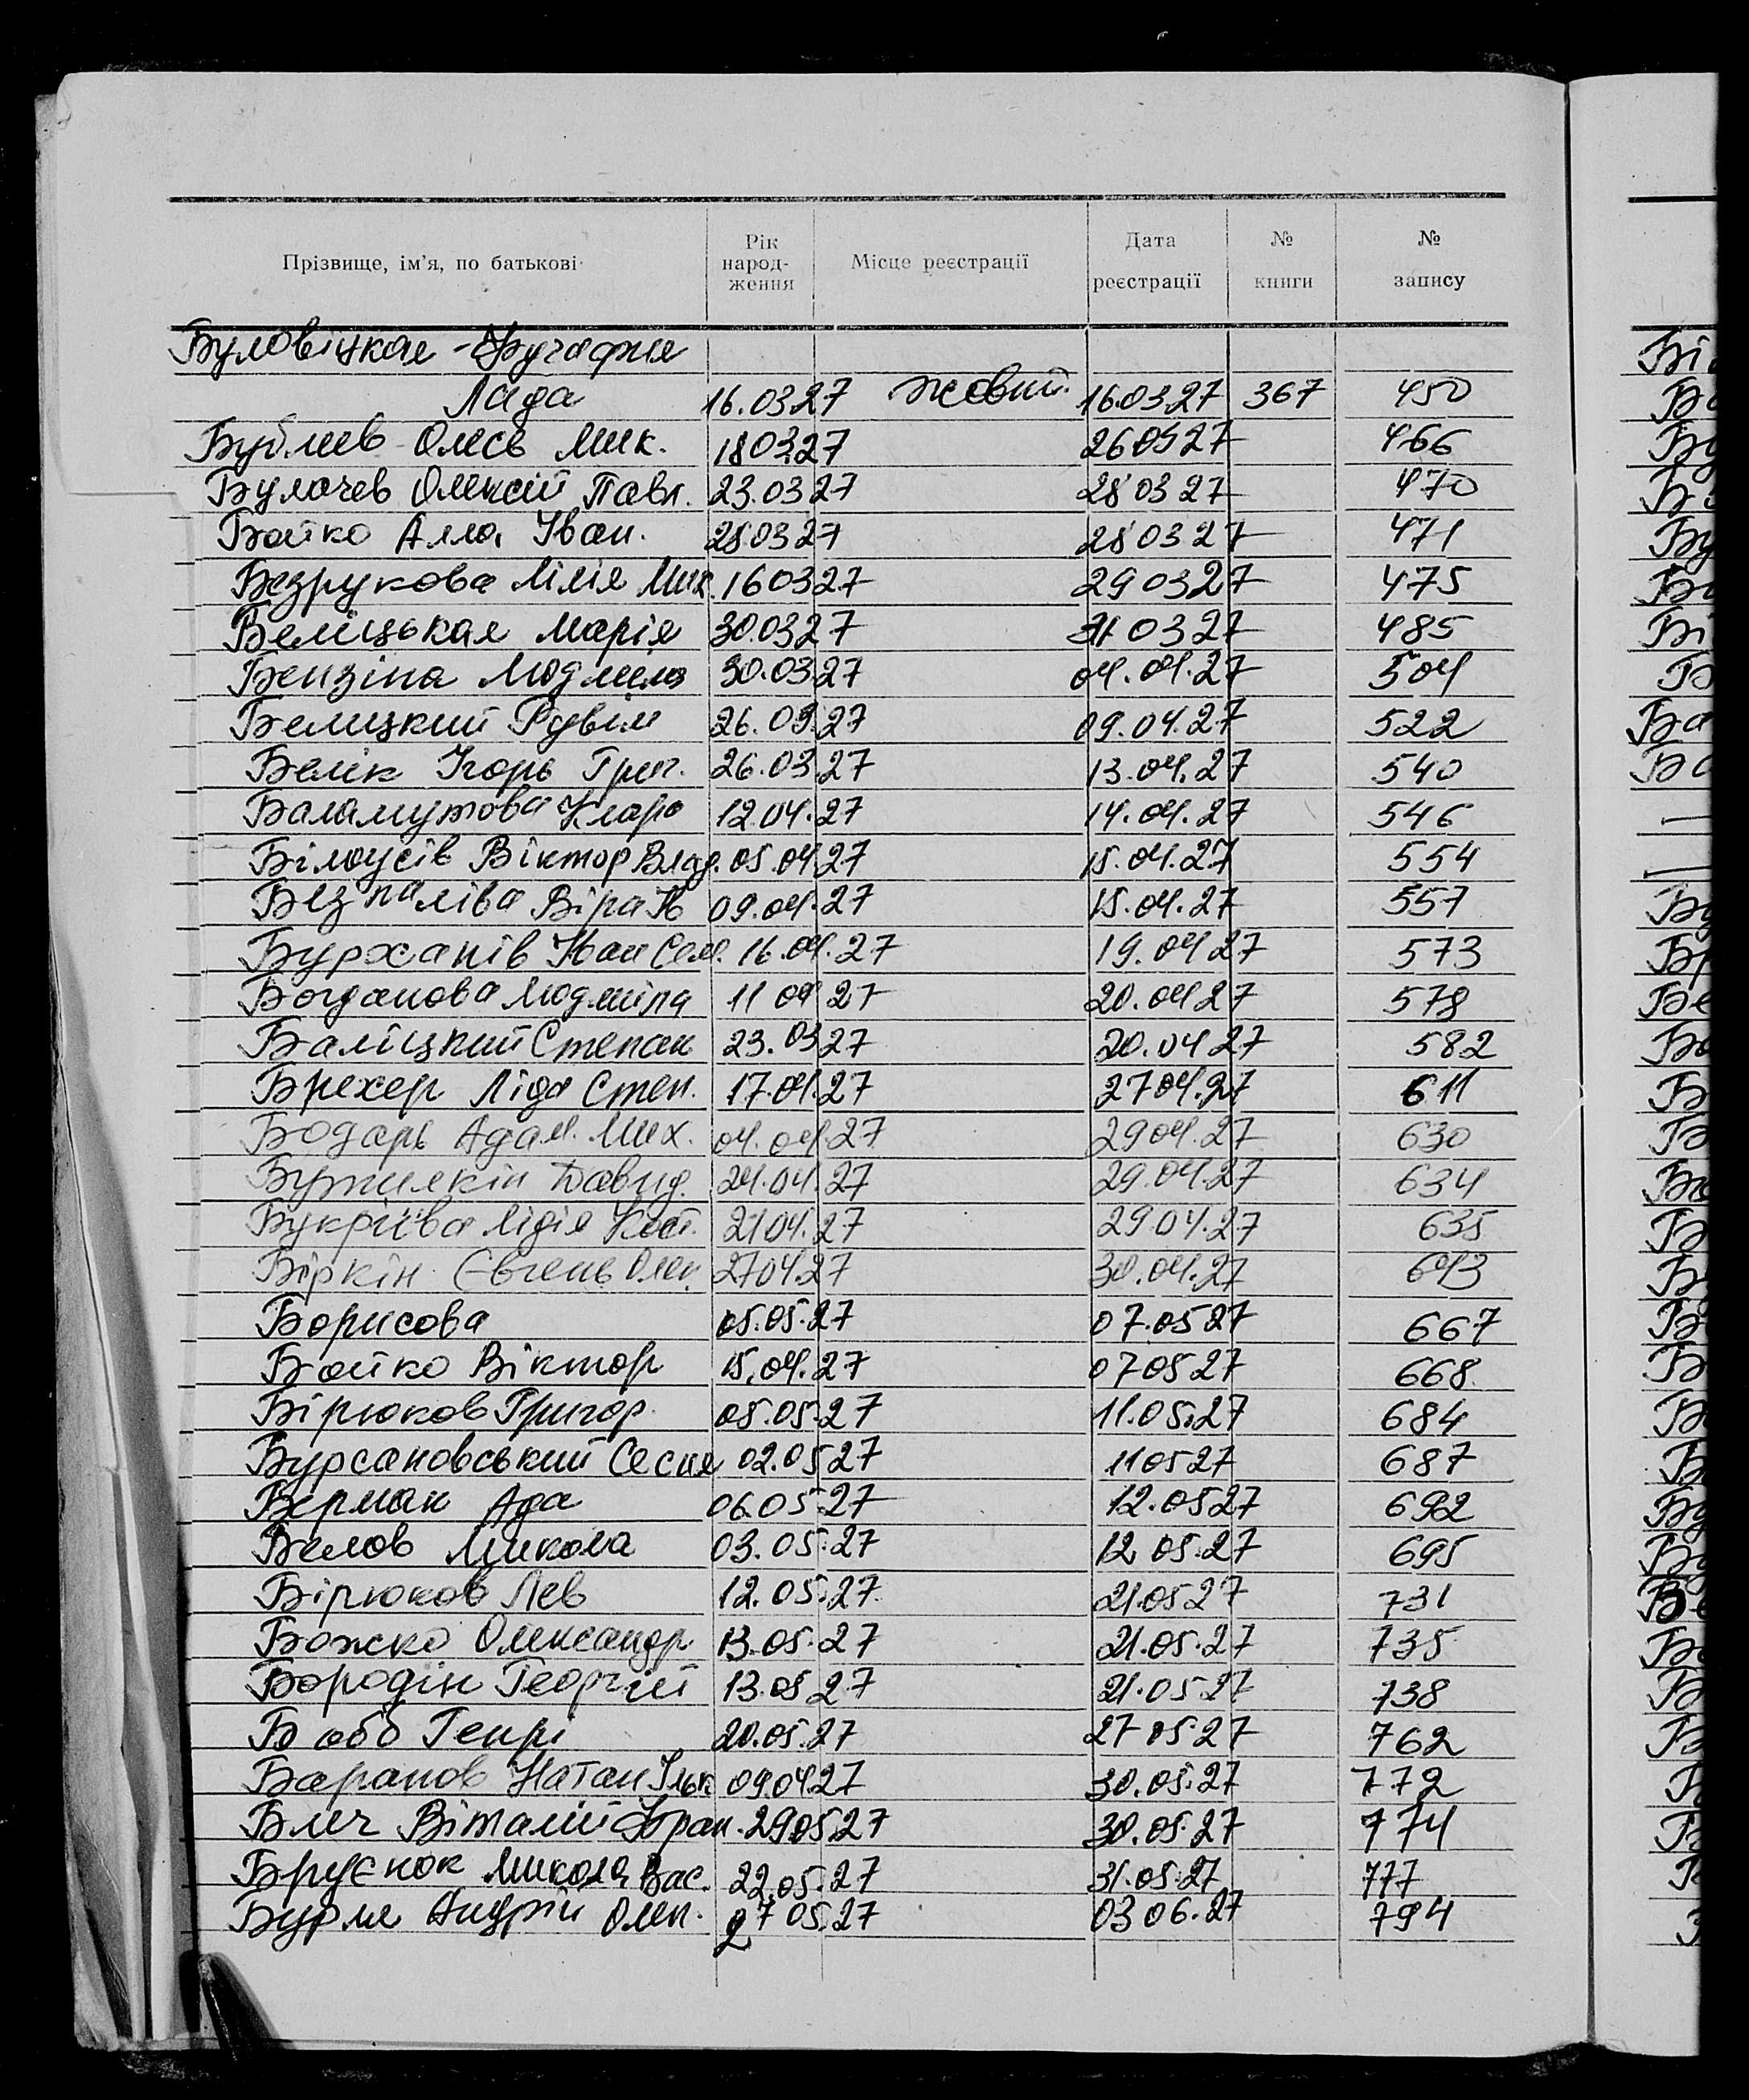 Прізвище, ім'я, по батькові Рік народ-ження Місце реєстрації Дата реєстрації № книги № запису
Буловіцкая -
Лада 16.03.27 жовтн. 16.03.27 367 450
Бублиєв Олесь Мик. 18.03.27 26.03.27 466
Булачев Олексій Павл. 23.03.27 28.03.27 470
Бойко Алла Іван. 28.03.27 28.03.27 471
Безрукова Лілія Мик. 16.03.27 29.03.27 475
Беліцькая Марія 30.03.27 31.03.27 485
Бензіна Людмила 30.03.27 04.04.27 504
Белицкий Рувім 26.03.27 09.04.27 522
Белік Ігорь Григ. 26.03.27 13.04.27 540
Баламутова Клара 12.04.27 14.04.27 546
Білоусів Віктор Влад. 05.04.27 15.04.27 554
Безпаліва Віра 09.04.27 15.04.27 557
Бурханів Іван Сем. 16.04.27 19.04.27 573
Богданова Людміла 11 04 27 20.04.27 578
Баліцкий Степан 23.03.27 20.04.27 582
Брехер Ліда Степ. 17.04.27 27.04.27 611
Бодарь Адам. Мих. 04.04.27 29.04.27 630
Бутилкін Давид. 24.04.27 29.04.27 634
Букріїва Лідія Кост. 21.04.27 29.04.27 635
Біркін Євгень Олек. 27.04.27 30.04.27 643
Борисова 05.05.27 07.05.27 667
Бойко Віктор 15.04.27 07.05.27 668
Бірюков Григор. 05.05.27 11.05.27 684
Бурсановський 02.05.27 11.05.27 687
Берман Ада 06.05.27 12.05.27 692
Белов Микола 03.05.27 12.05.27 695
Бірюков Лев 12.05.27 21.05.27 731
Божко Олександр 13.05.27 21.05.27 735
Бородін Георгій 13.05.27 21.05.27 738
Бобо Генрі 20.05.27 27.05.27 762
Баранов Натан Ільк 09.04.27 30.05.27 772
Блич Віталій Фран. 29.05.27 30.05.27 774
Бруєнок Микола Вас. 22.05.27 31.05.27 777
Бурле Андрій Олек. 27.05.27 03.06.27 794